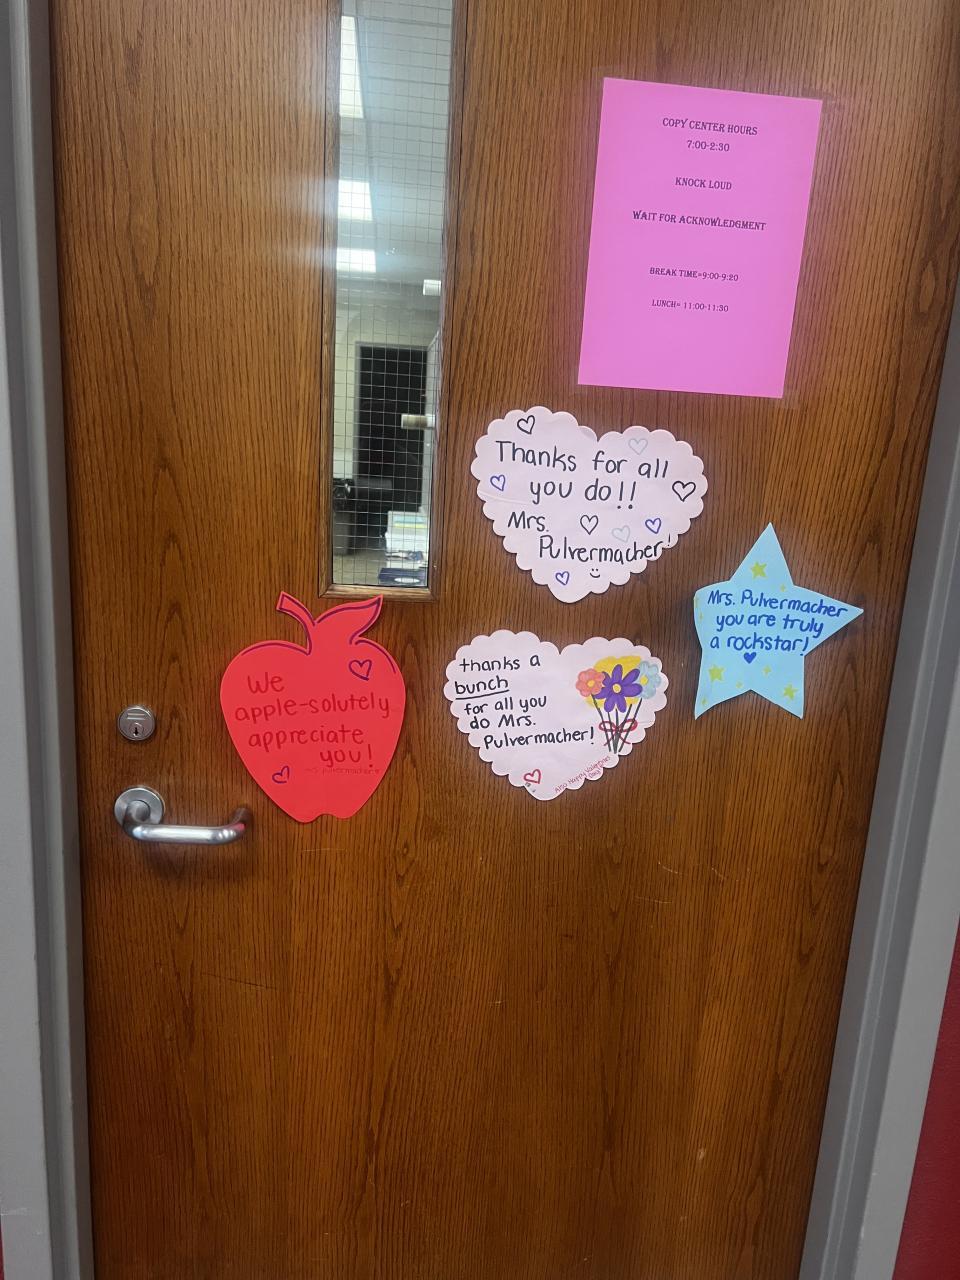 COPY CENTER HOURS
7:00-2:30
KNOCK LOUD
WAIT FOR ACKNOWLEDGMENT
BREAK TIME=9:00-9:20
LUNCH= 11:00-11:30
Thanks for all
you do!!
Mrs.
Pulvermacher!
Mrs. Pulvermacher
you are truly
a rockstar!
We
apple-solutely
appreciate
you!
mrs. pulvermacher
thanks a
bunch
for all you
do Mrs.
Pulvermacher!
Also Happy Valentines
Day!